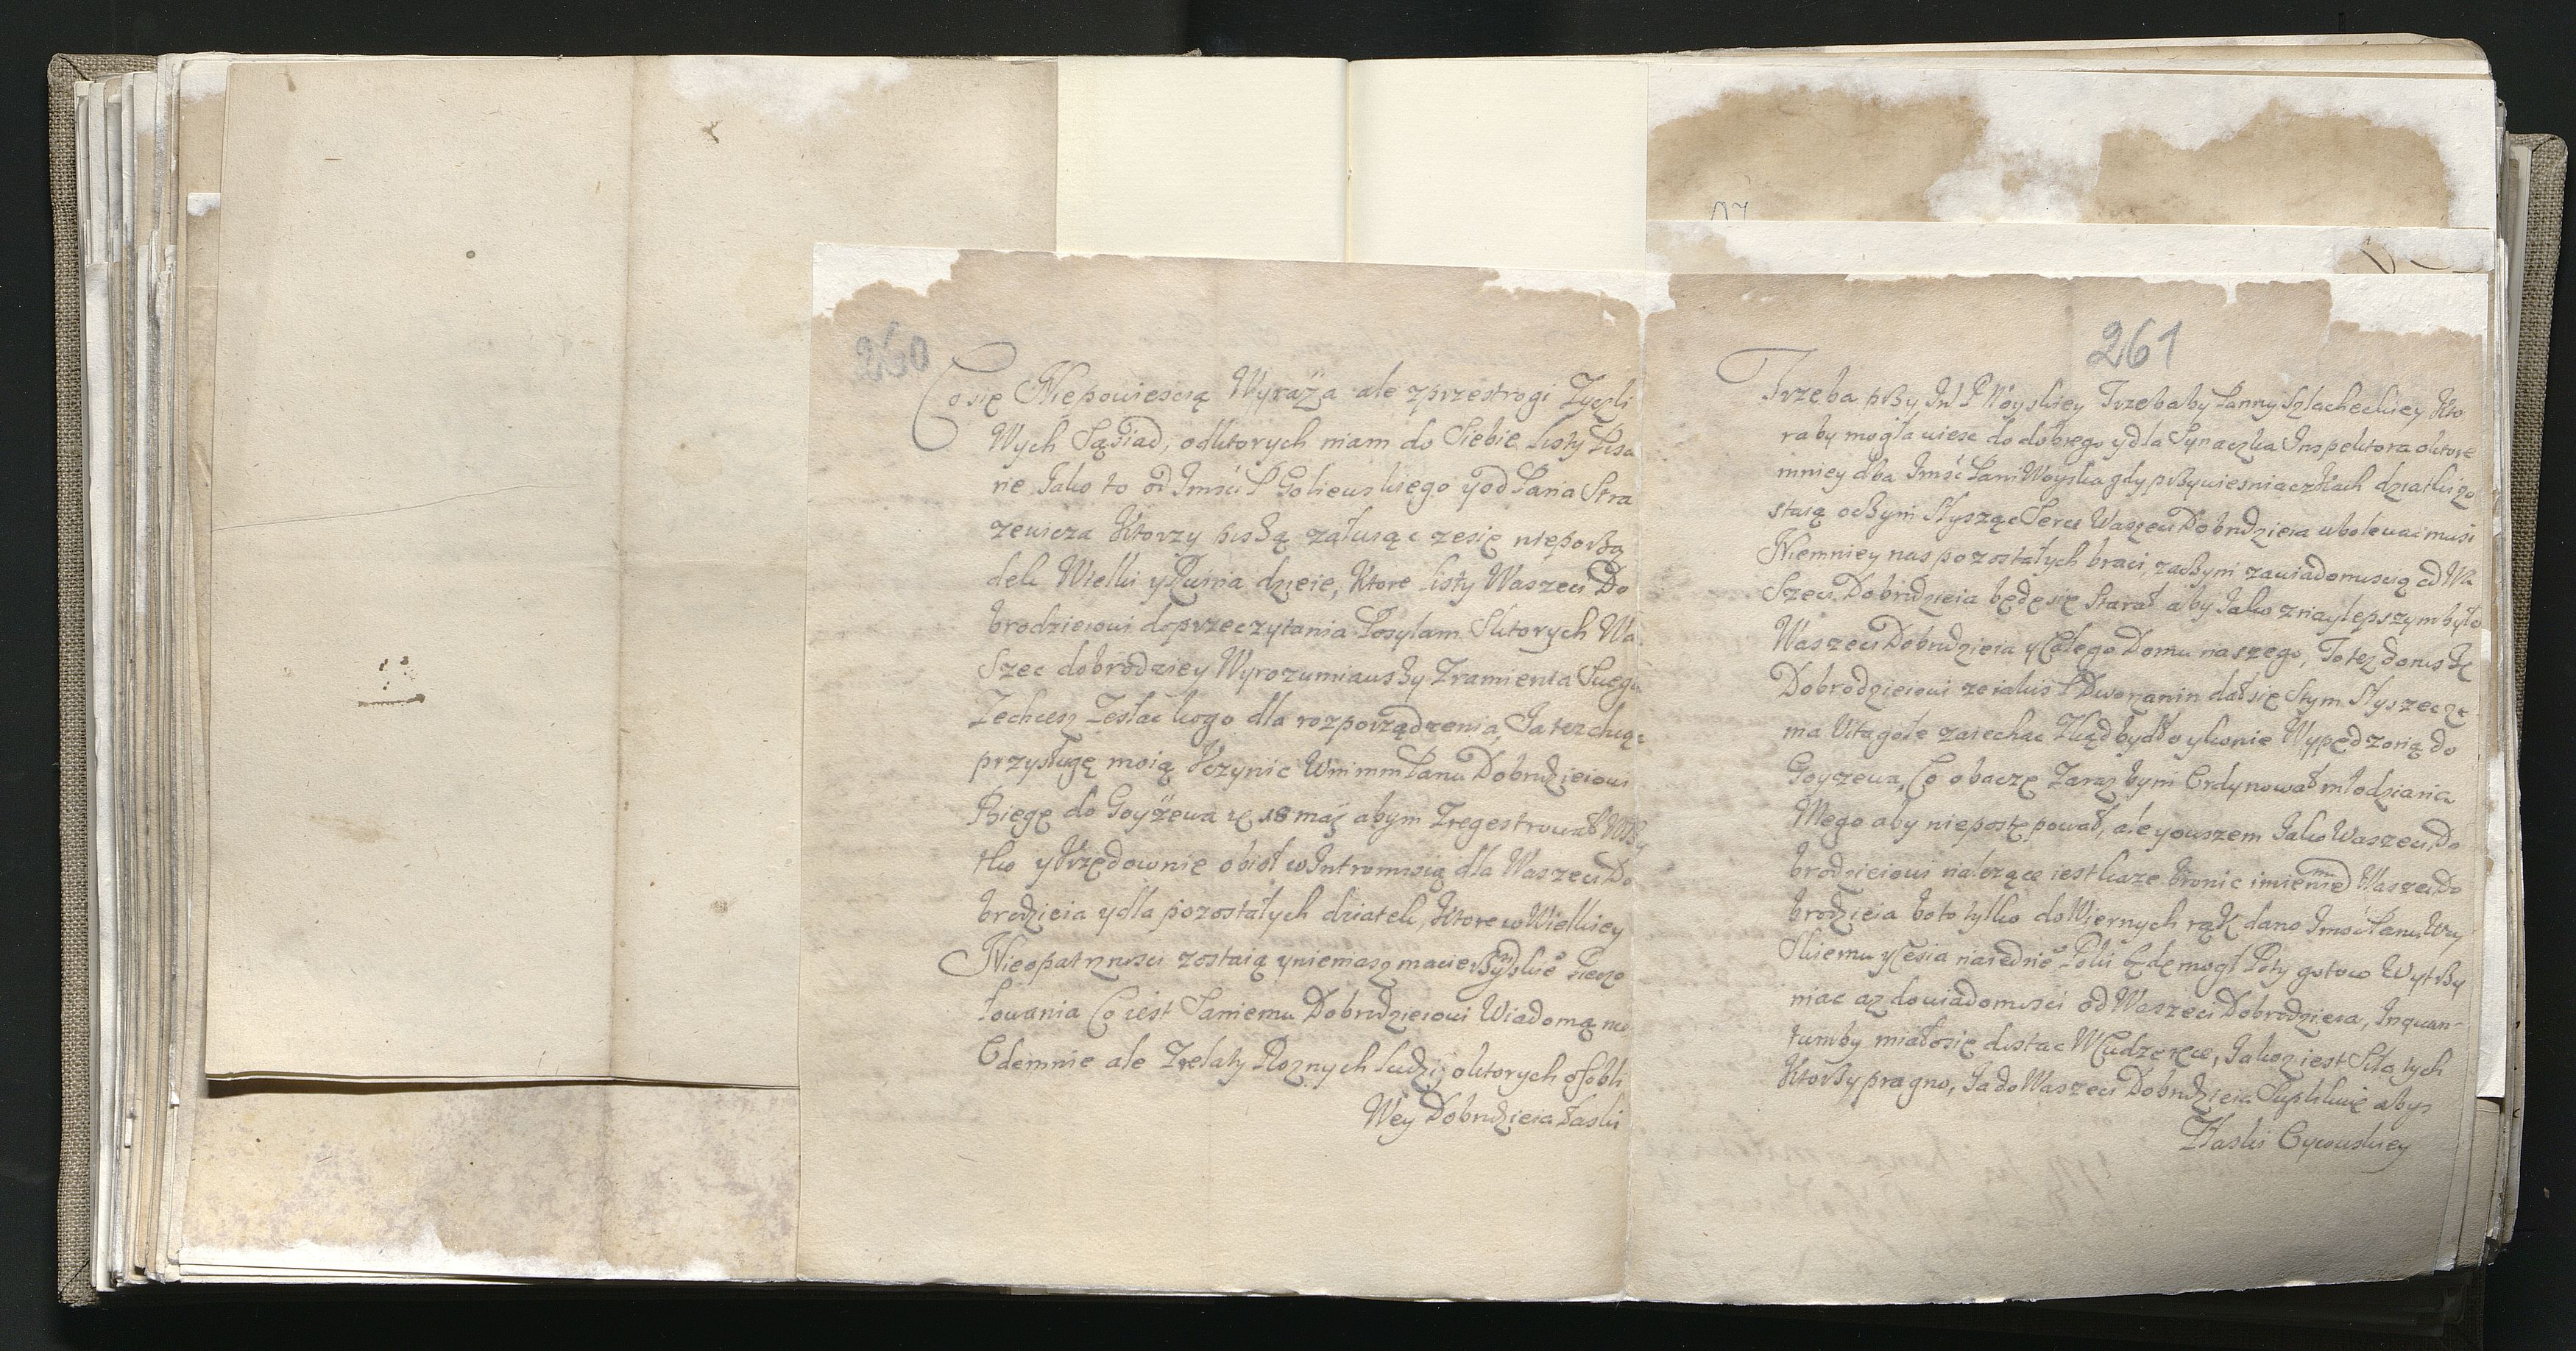 260
Co się Niepowiescią Wyraża ale z przestrogi Zyczli
Wych Sąsiad, odktorych mam do Siebie listy Pisa
ne Jako to od Imści P Goliewskiego y od Pana Stra
zewicza Ktorzy piszą załuiąc ze się nieporzą
dek Wielki y Ruina dzieie, Ktore listy Waszeci Do
brodzieiowi do przeczytania Posyłam Sktorych Wa
Szec dobrodziey Wyrozumiawszy Zramienia Swego
Zechcesz Zesłac kogo dla rozporządzenia, Ja tez chcąc
przysługę moią Uczynic Wmmm Panu Dobrodzieiowi
Biegę do Goyżewa 18 maj abym Zregestrował
tko y Urzędownie obiął w Intromisią dla Waszeci Do
brodzieia y dla pozostałych dziatek, Ktore w Wielkiey
Nieopatrznosci zostaią y niemasz
łowania Co iest Samemu Dobrodzieiowi Wiadomą
Odemnie ale Zrelaty Roznych ludzi, oktorych osobli
Wey Dobrodzieia łaski
261
Trzeba przy Im P Woyskiey Trzebaby Panny Szlacheckiey Kto
raby mogła wiesc do dobrego y dla Synaczka Inspektora oktore
mniey dba Imść Pani Woyska gdy przy wiesniaczkach dziatki zo
staią oczym Słysząc Serce Waszeci Dobrodzieia ubolewac musi
Niemniey nas pozostałych braci, zaczym zawiadomoscią od Wa
Szeci Dobrodzieia będę się Starał aby Jako znaylepszym było
Waszeci Dobrodzieia y Całego Domu naszego, To tez donoszę
Dobrodzieiowi ze iakis P Dworzanin dał się Stym Słyszec ze
ma Vitagołe zaiechac Zkąd bydło y konie Wypędzoną do
Goyzewa, Co obaczę Zaraz bym Ordynował młodziana
Mego aby nie postępował, ale y owszem Jako Waszeci Do
brodzieiowi nalezące iest kaze bronic imieniem Waszeci Do
brodzieia bo to tylko do Wiernych rąk dano Imść Panu Woy
Skiemu Poki będę mogł Poty gotow Wytrzy
miac az do wiadomosci od Waszeci Dobrodzieia, Inquan-
tumby miało się dostac W Cudze ręce, Jakoz iest Siła tych
Ktorzy pragno, Ja do Waszeci Dobrodzieia Suplikuię abys
Złaski Oycowskiey